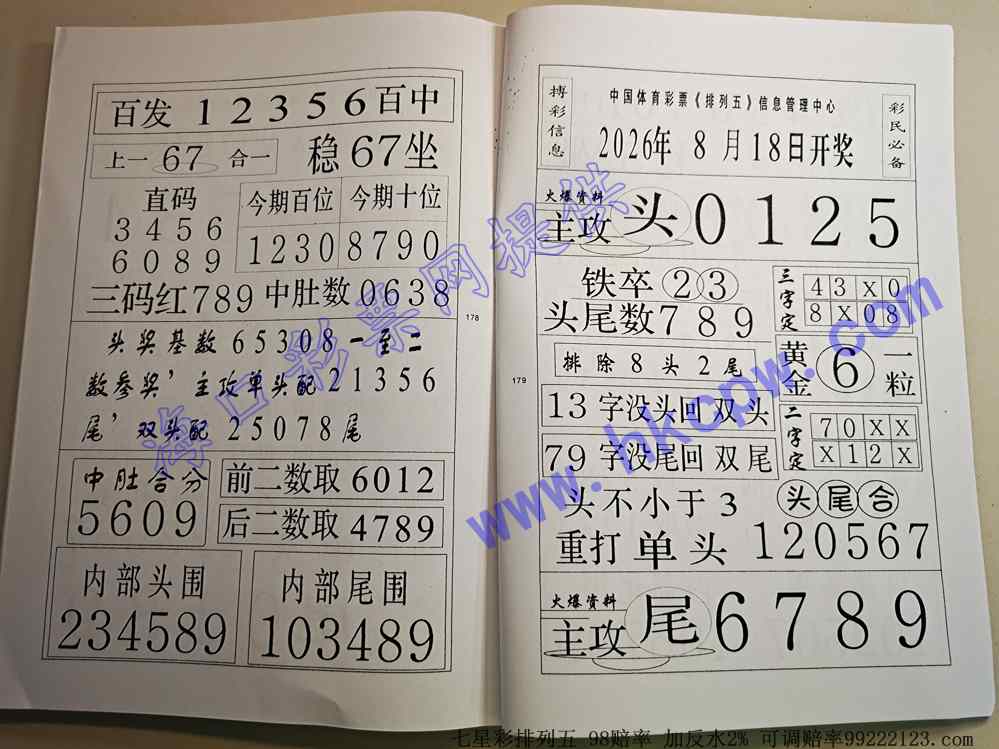 百发 12356 百中
上一 67 合一
稳 67 坐
直码
3456
6089
今期百位
1230
今期十位
8790
三码红 789 中肚数 0638
头奖基数 65308 一至二
数参奖，主攻单头配 21356
尾，双头配 25078 尾
中肚合分
5609
前二数取 6012
后二数取 4789
内部头围
234589
内部尾围
103489
178
搏彩信息
中国体育彩票《排列五》信息管理中心
2026年 8 月18日开奖
彩民必备
火爆资料
主攻 头 0125
铁卒 23
头尾数 789
三字定
43X0
8X08
排除 8 头 2 尾
黄金 6 一粒
13 字没头回 双 头
79 字没尾回 双 尾
二字定
70XX
X12X
头不小于 3
头尾合
重打单头 120567
火爆资料
主攻 尾 6789
179
海口彩票网提供
www.hkcpw.com
七星彩排列五 98赔率 加反水2% 可调赔率99222123.com